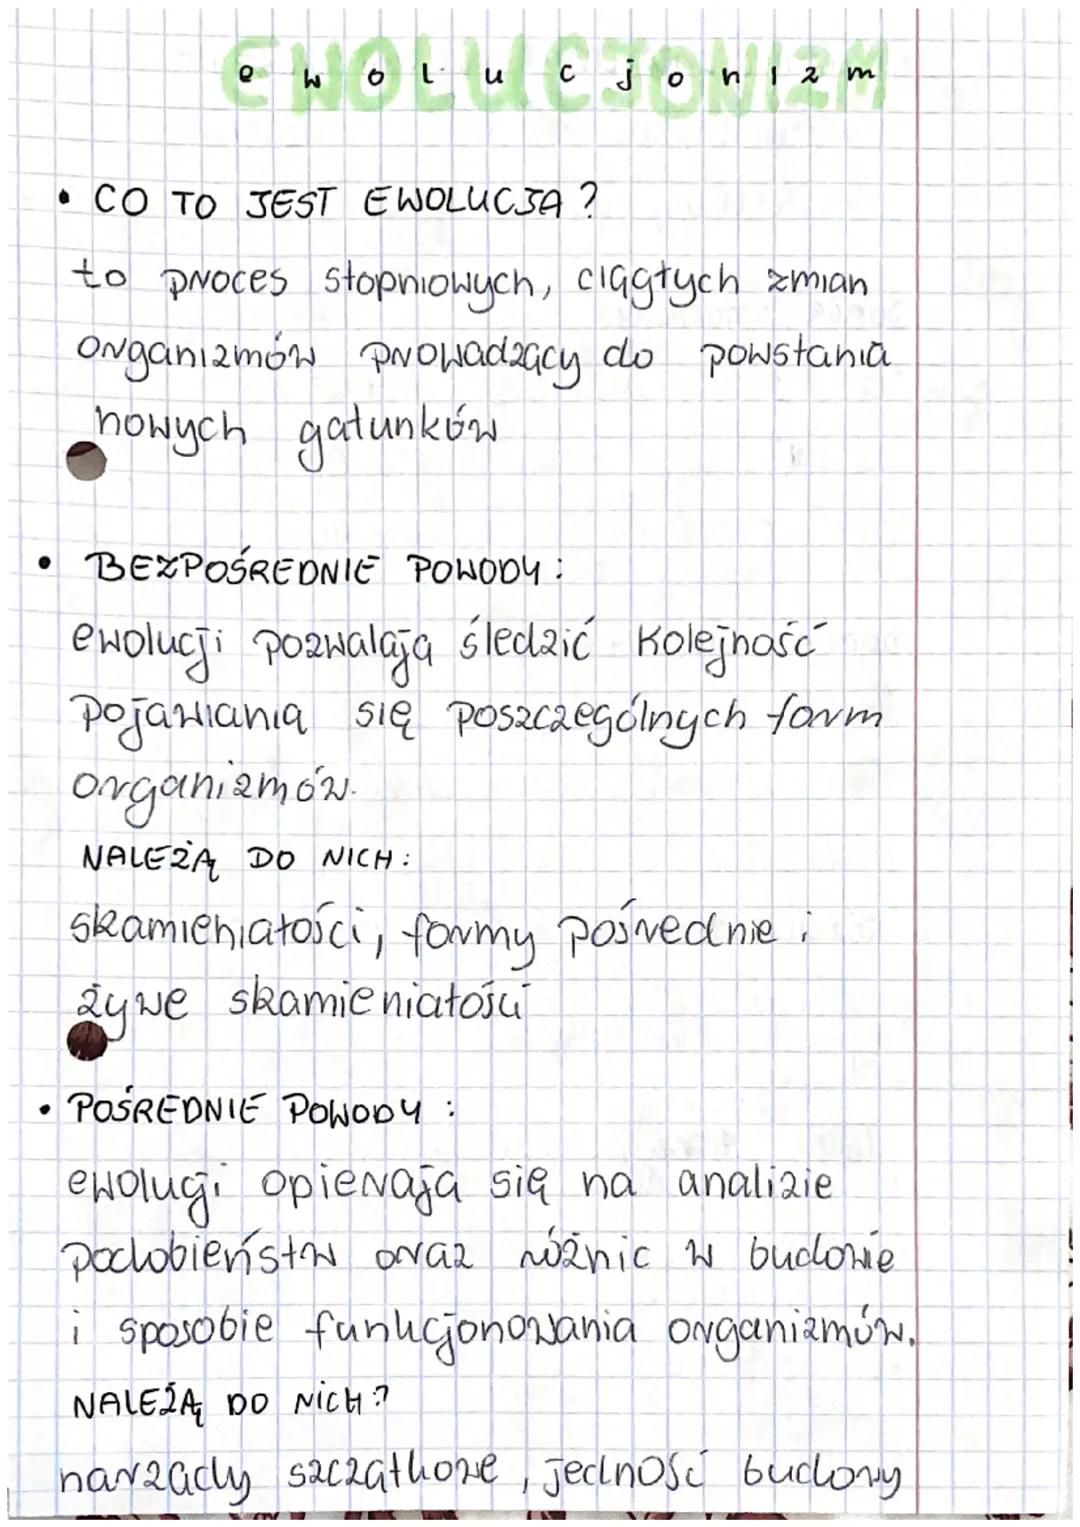 EWOLUCJONIZM
ewolucjonizm
• CO TO JEST EWOLUCJA?
to proces stopniowych, ciągłych zmian
organizmów prowadzący do powstania
nowych gatunków
• BEZPOŚREDNIE POWODY:
ewolucji pozwalają śledzić kolejność
pojawiania się poszczególnych form
organizmów.
NALEŻĄ DO NICH:
skamieniałości, formy pośrednie i
żywe skamieniałości
• POŚREDNIE POWODY:
ewolucji opierają się na analizie
podobieństw oraz różnic w budowie
i sposobie funkcjonowania organizmów.
NALEŻĄ DO NICH?
narządy szczątkowe, jedność budowy